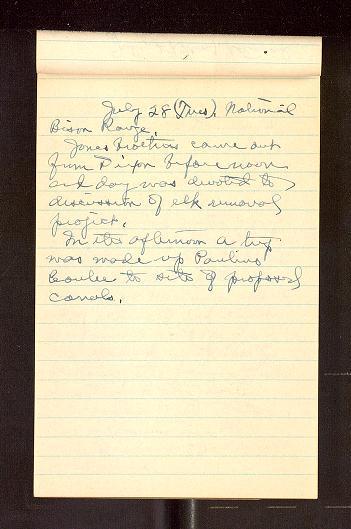 July 28 (Tues). National
Bison Range.
Jones Brothers came out
from Dixon before noon
and day was devoted to
discussion of elk removal
project.
In the afternoon a trip
was made up Pauline
Coulee to site of proposed
corrals.